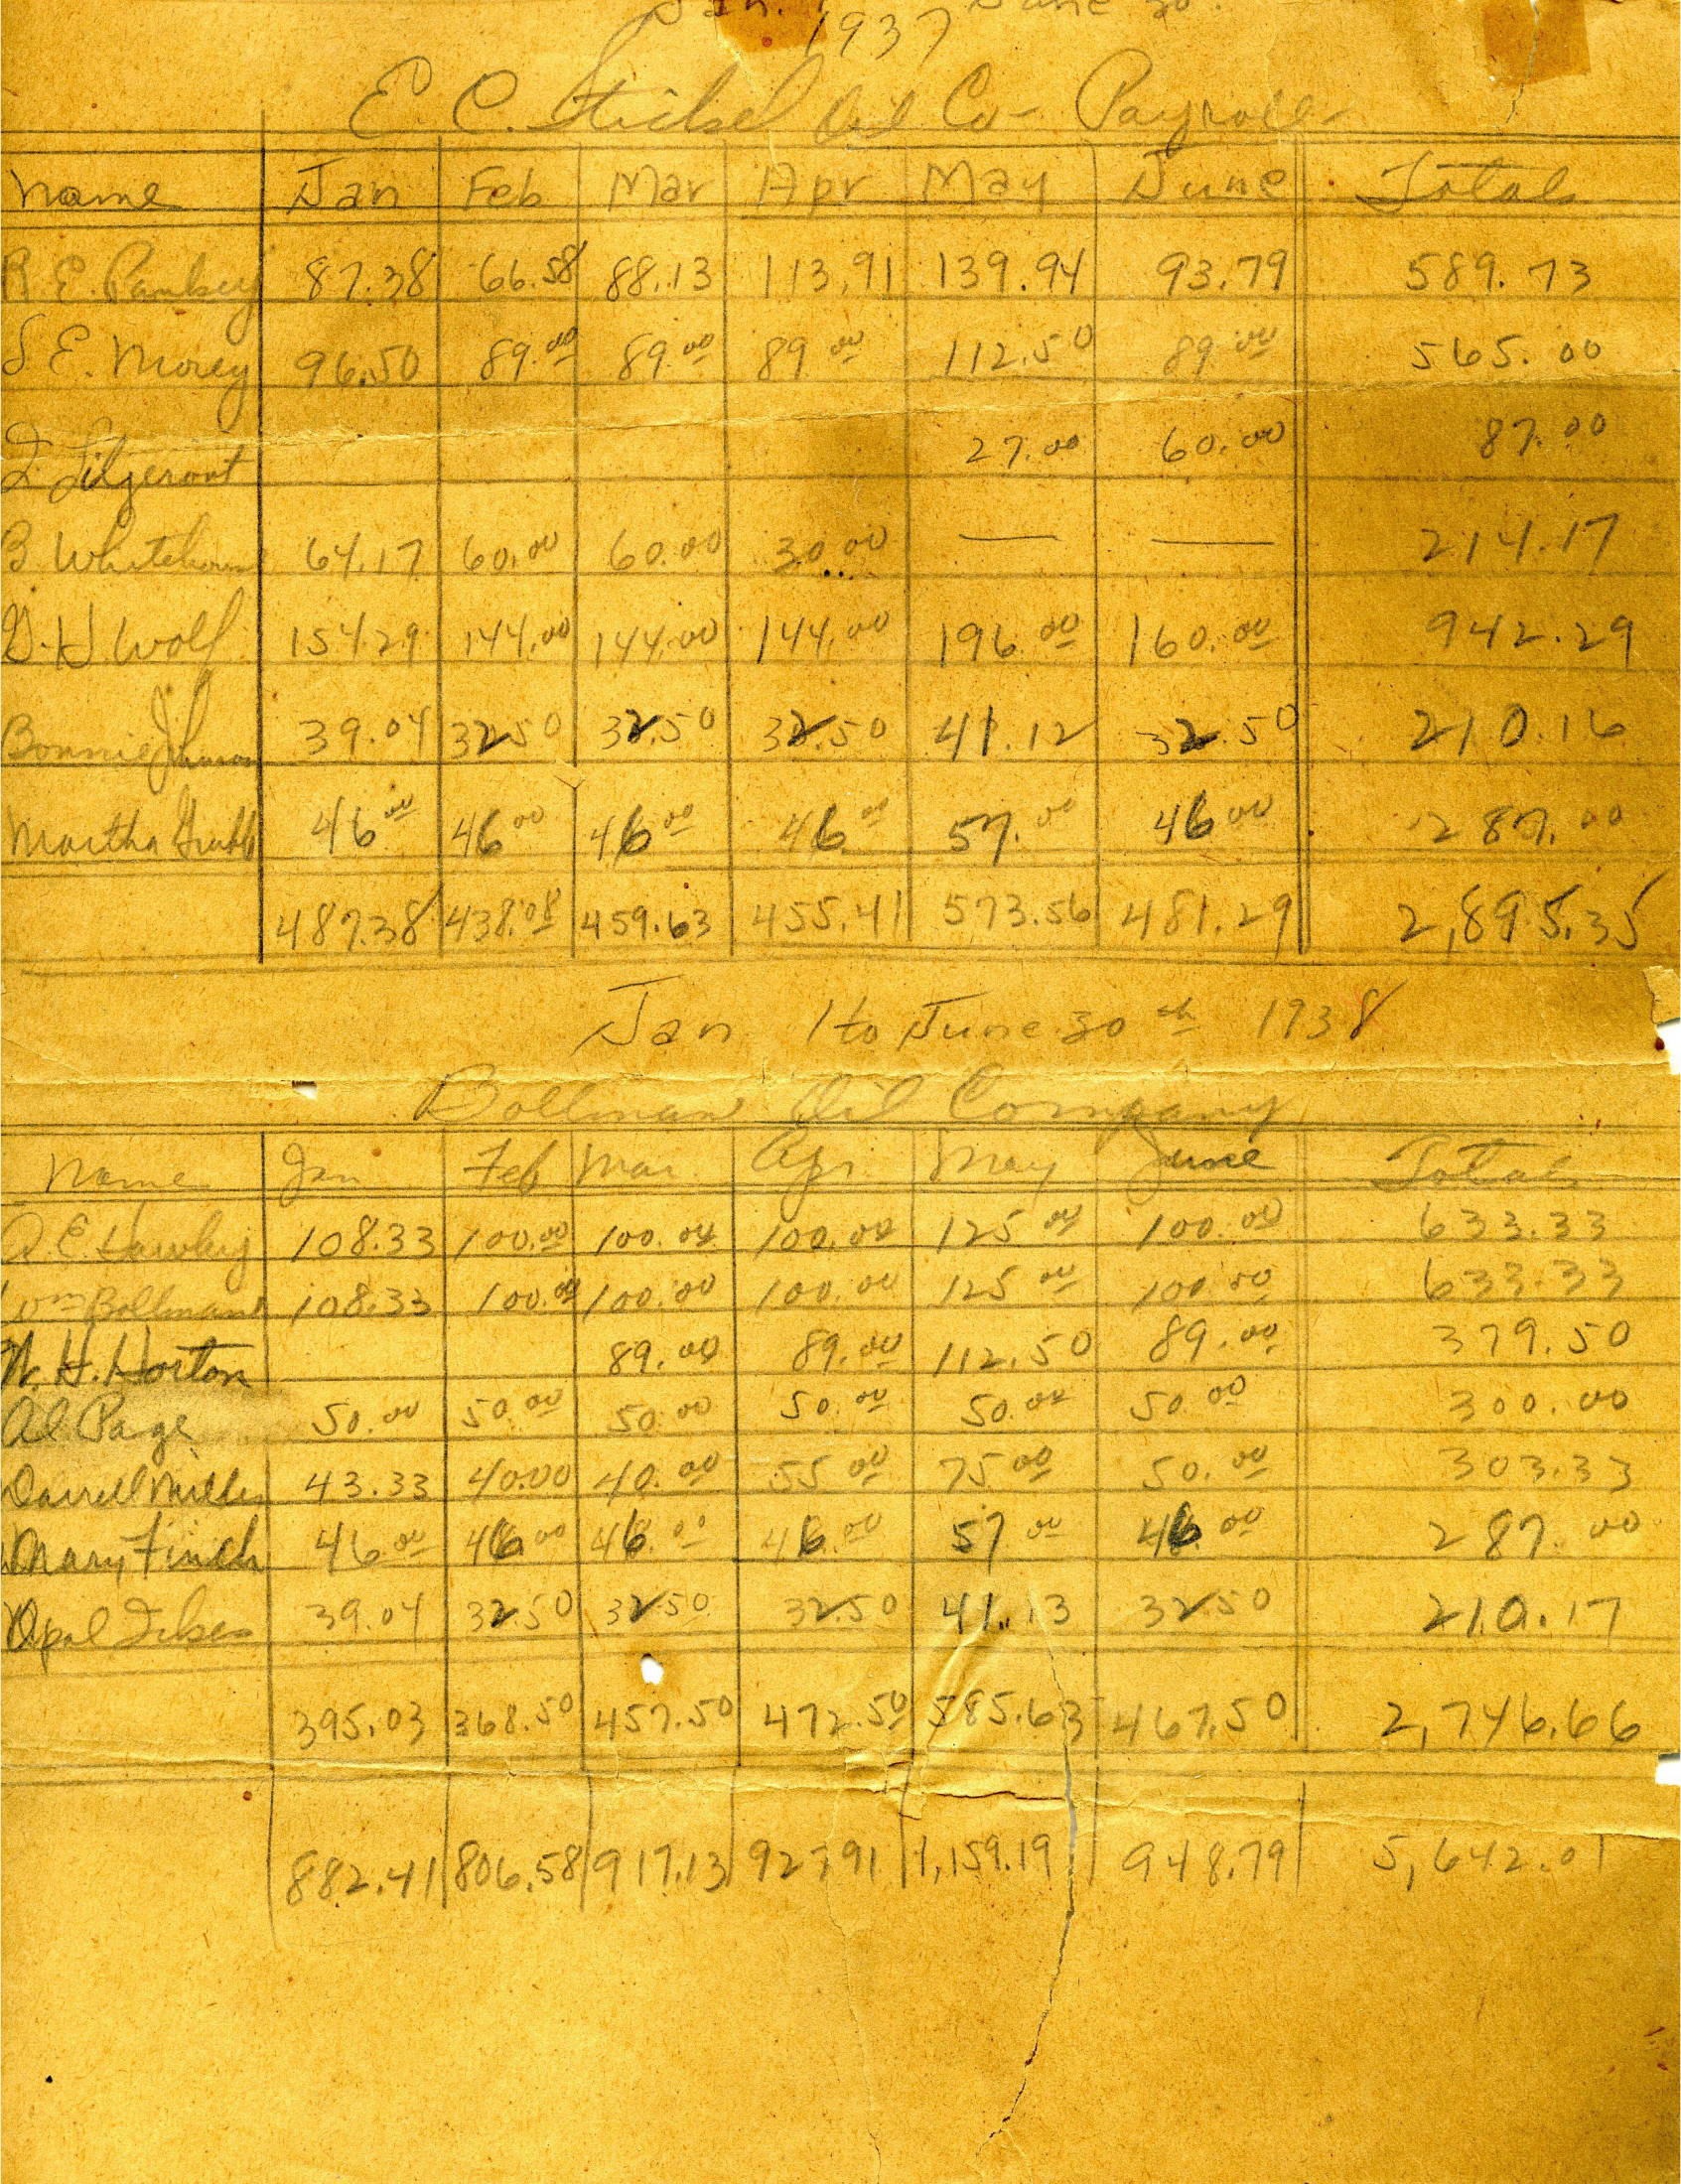 Jan. 1 June 30.
1937
E. C. Oil Co- Payroll-
Name Jan Feb Mar Apr May June Total
R. E. 87.38 66.58 88.13 113.91 139.94 93.79 589.73
S E. Morey 96.50 89.00 89.00 89.00 112.50 89.00 565.00
27.00 60.00 87.00
B 64.17 60.00 60.00 30.00 — — 214.17
G. H. Wolf 154.29 144.00 144.00 144.00 196.00 160.00 942.29
Bonnie Johnson 39.04 32.50 32.50 32.50 41.12 32.50 210.16
Martha Grubb 46.00 46.00 46.00 46.00 57.00 46.00 287.00
487.38 438.08 459.63 455.41 573.56 481.29 2,895.35
Jan 1 to June 30th 1938
Bollman Oil Company
Name Jan Feb Mar. Apr. May June Total
E Hawley 108.33 100.00 100.00 100.00 125.00 100.00 633.33
Wm Bollman 108.33 100.00 100.00 100.00 125.00 100.00 633.33
W. H. Horton 89.00 89.00 112.50 89.00 379.50
Al Page 50.00 50.00 50.00 50.00 50.00 50.00 300.00
Darrell Miller 43.33 40.00 40.00 55.00 75.00 50.00 303.33
Mary Finch 46.00 46.00 46.00 46.00 57.00 46.00 287.00
Opal 39.04 32.50 32.50 32.50 41.13 32.50 210.17
395.03 368.50 457.50 472.50 585.63 467.50 2,746.66
882.41 806.58 917.13 927.91 1,159.19 948.79 5,642.01